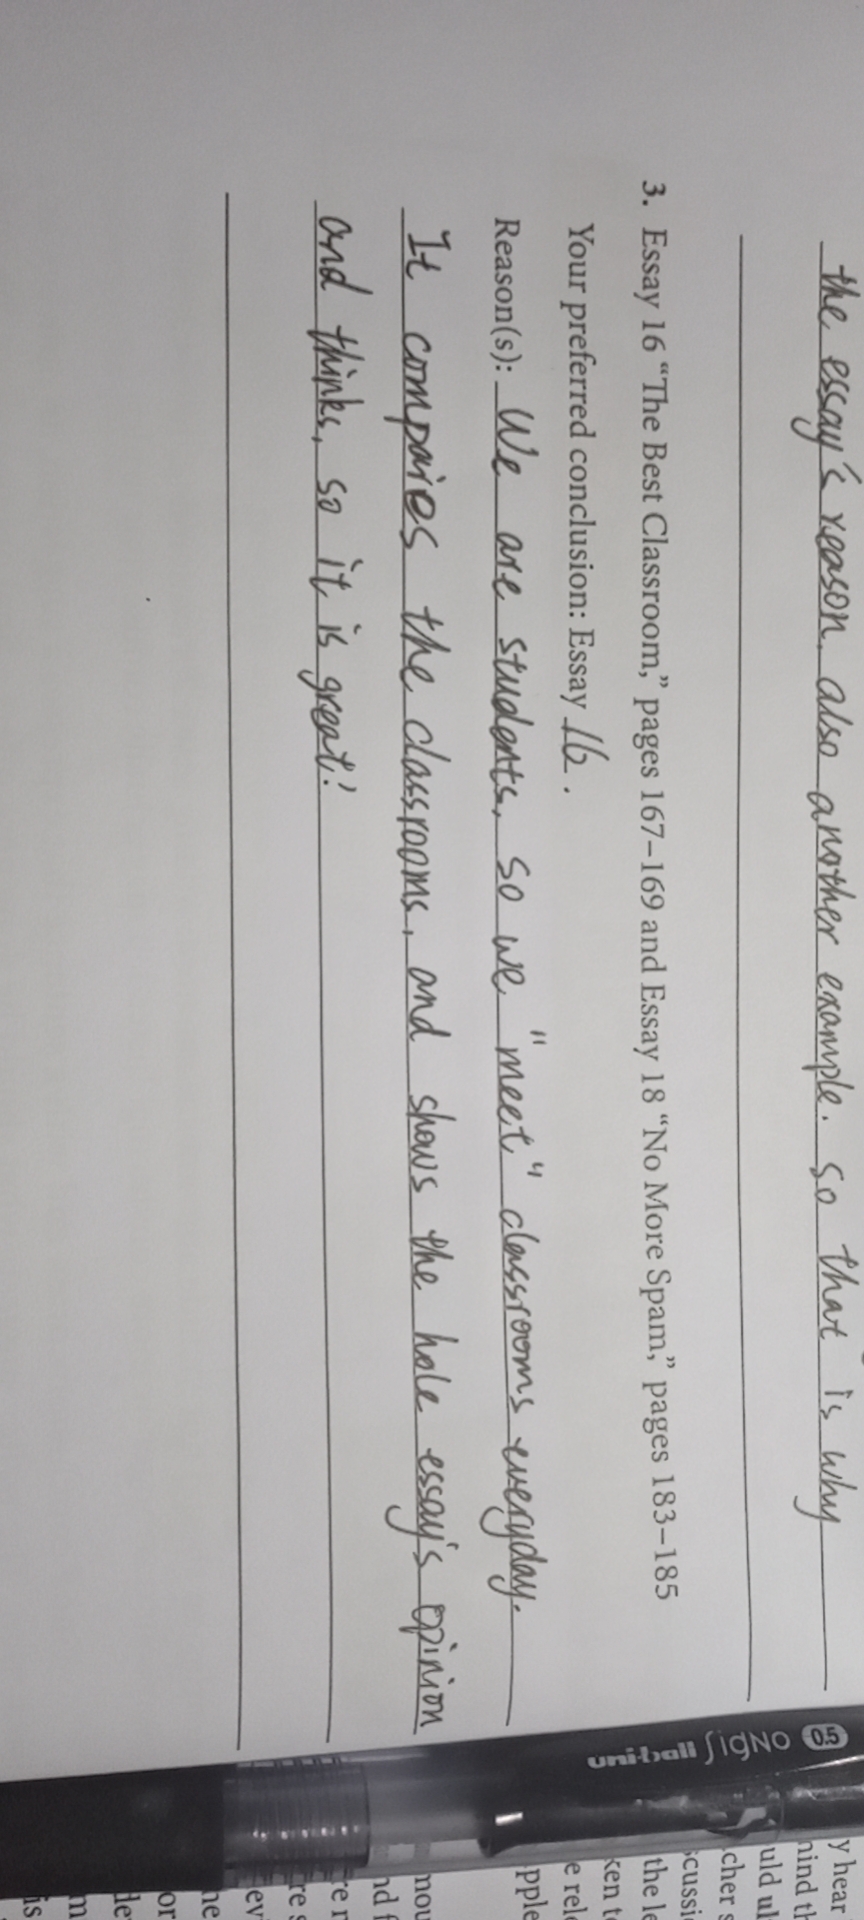 the essay's reason. also another example. so that is why
3. Essay 16 “The Best Classroom,” pages 167–169 and Essay 18 “No More Spam,” pages 183–185
Your preferred conclusion: Essay 16.
Reason(s): We are students, so we "meet" classrooms everyday.
It compaires the classrooms, and shows the hole essay's opinion
and thinks, so it is great!
uni-ball SigNO 0.5
y hear
uld ul
cher s
scussi
the le
ken to
e rel
pple
mou
nd f
re r
re s
ev
he
or
de
m
is